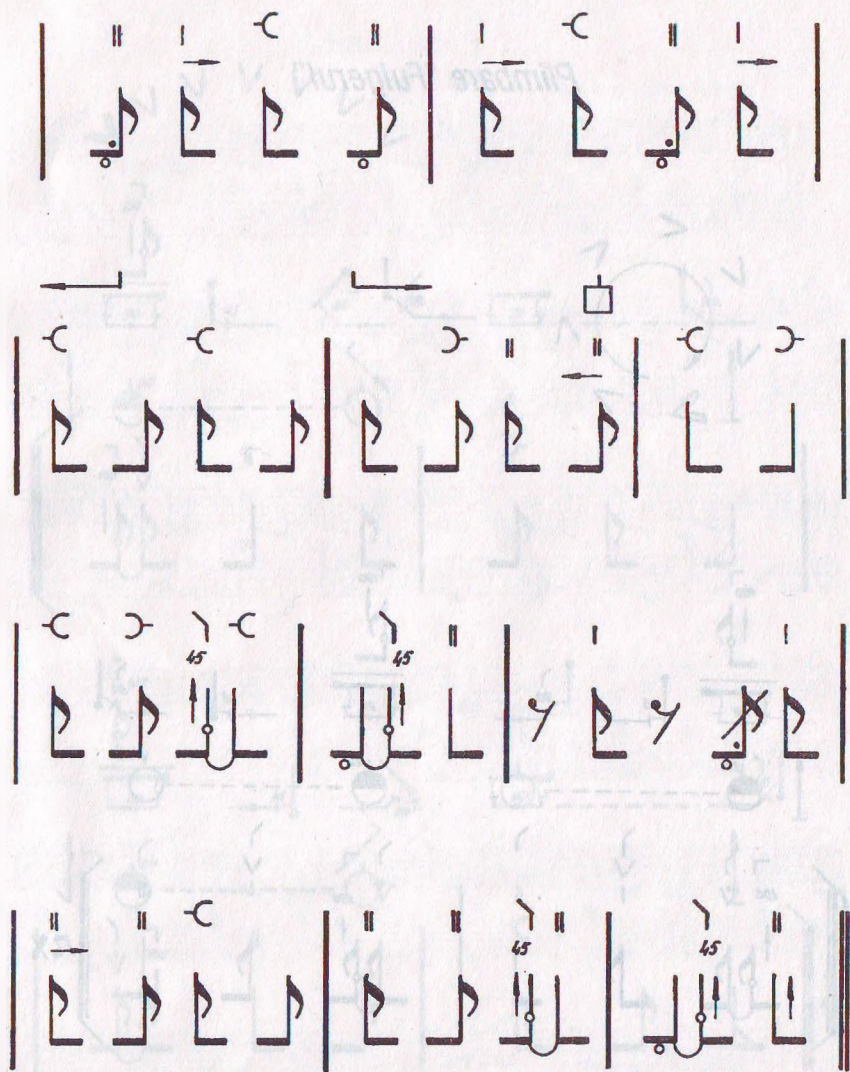 45 45
45 45